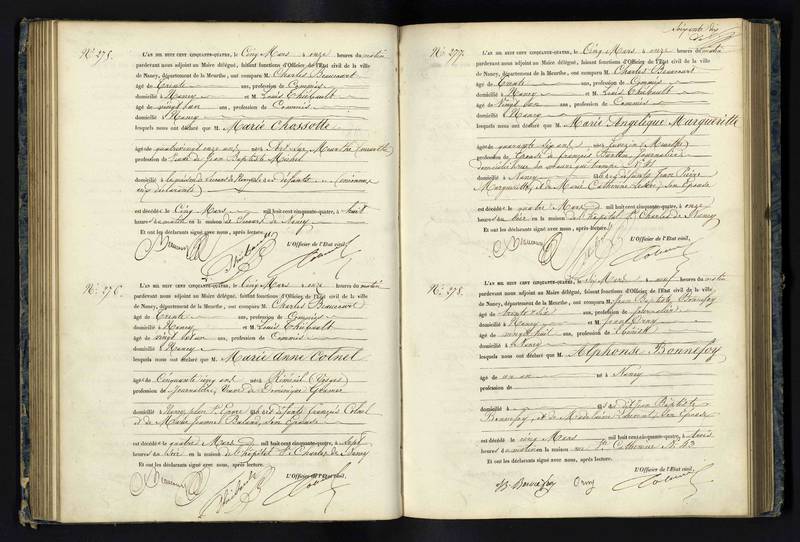 N° 275.
L'AN MIL HUIT CENT CINQUANTE-QUATRE, le Cinq Mars à onze heures du matin
pardevant nous adjoint au Maire délégué, faisant fonctions d'Officier de l'Etat civil de la ville
de Nancy, département de la Meurthe, ont comparu M. Charles Beaucourt
âgé de trente ans, profession de Commis
domicilié à Nancy et M. Louis Thiébault
âgé de vingt un ans, profession de Commis
domicilié à Nancy
lesquels nous ont déclaré que M. Marie Chossotte
âgée de quatre vingt onze ans née à Art sur Meurthe (Meurthe)
profession de Veuve de Jean Baptiste Michel
domicilié à
est décédée le Cinq Mars mil huit cent cinquante-quatre, à huit
heures du matin en la maison de Secours de Nancy
Et ont les déclarants signé avec nous, après lecture.
L'Officier de l'Etat civil,
N° 276.
L'AN MIL HUIT CENT CINQUANTE-QUATRE, le Cinq Mars à onze heures du matin
pardevant nous adjoint au Maire délégué, faisant fonctions d'Officier de l'Etat civil de la ville
de Nancy, département de la Meurthe, ont comparu M. Charles Beaucourt
âgé de trente ans, profession de Commis
domicilié à Nancy et M. Louis Thiébault
âgé de vingt un ans, profession de Commis
domicilié à Nancy
lesquels nous ont déclaré que M. Marie Anne Colnel
âgée de Cinquante cinq ans née à (Vosges)
profession de Journalière, Veuve de Dominique
domicilié à Nancy fille de défunts François Colnel
et de Marie Jeanne son Epouse
est décédée le quatre Mars mil huit cent cinquante-quatre, à sept
heures du soir en la maison de l'hôpital St Charles de Nancy
Et ont les déclarants signé avec nous, après lecture.
L'Officier de l'Etat civil,
N° 277.
L'AN MIL HUIT CENT CINQUANTE-QUATRE, le Cinq Mars à onze heures du matin
pardevant nous adjoint au Maire délégué, faisant fonctions d'Officier de l'Etat civil de la ville
de Nancy, département de la Meurthe, ont comparu M. Charles Beaucourt
âgé de trente ans, profession de Commis
domicilié à Nancy et M. Louis Thiébault
âgé de vingt un ans, profession de Commis
domicilié à Nancy
lesquels nous ont déclaré que M. Marie Angélique Margueritte
âgée de quarante six ans née à (Meurthe)
profession de Epouse de François Journalier
domicilié à Nancy fille de défunts Jean Pierre
Margueritte, et de Marie Catherine son Epouse
est décédée le quatre Mars mil huit cent cinquante-quatre, à onze
heures du soir en la maison de l'hôpital St Charles de Nancy
Et ont les déclarants signé avec nous, après lecture.
L'Officier de l'Etat civil,
N° 278.
L'AN MIL HUIT CENT CINQUANTE-QUATRE, le six Mars à neuf heures du matin
pardevant nous adjoint au Maire délégué, faisant fonctions d'Officier de l'Etat civil de la ville
de Nancy, département de la Meurthe, ont comparu M. Jean Baptiste Bonnefoy
âgé de trente six ans, profession de journalier
domicilié à Nancy et M. Orny
âgé de vingt huit ans, profession de
domicilié à Nancy
lesquels nous ont déclaré que M. Alphonse Bonnefoy
âgé de un an né à Nancy
profession de
domicilié à fils de dit Jean Baptiste
Bonnefoy, et de Madeleine son Epouse
est décédé le cinq Mars mil huit cent cinquante-quatre, à trois
heures du matin en la maison rue Ste Catherine N° 43
Et ont les déclarants signé avec nous, après lecture.
L'Officier de l'Etat civil,
JB. Bonnefoy Orny